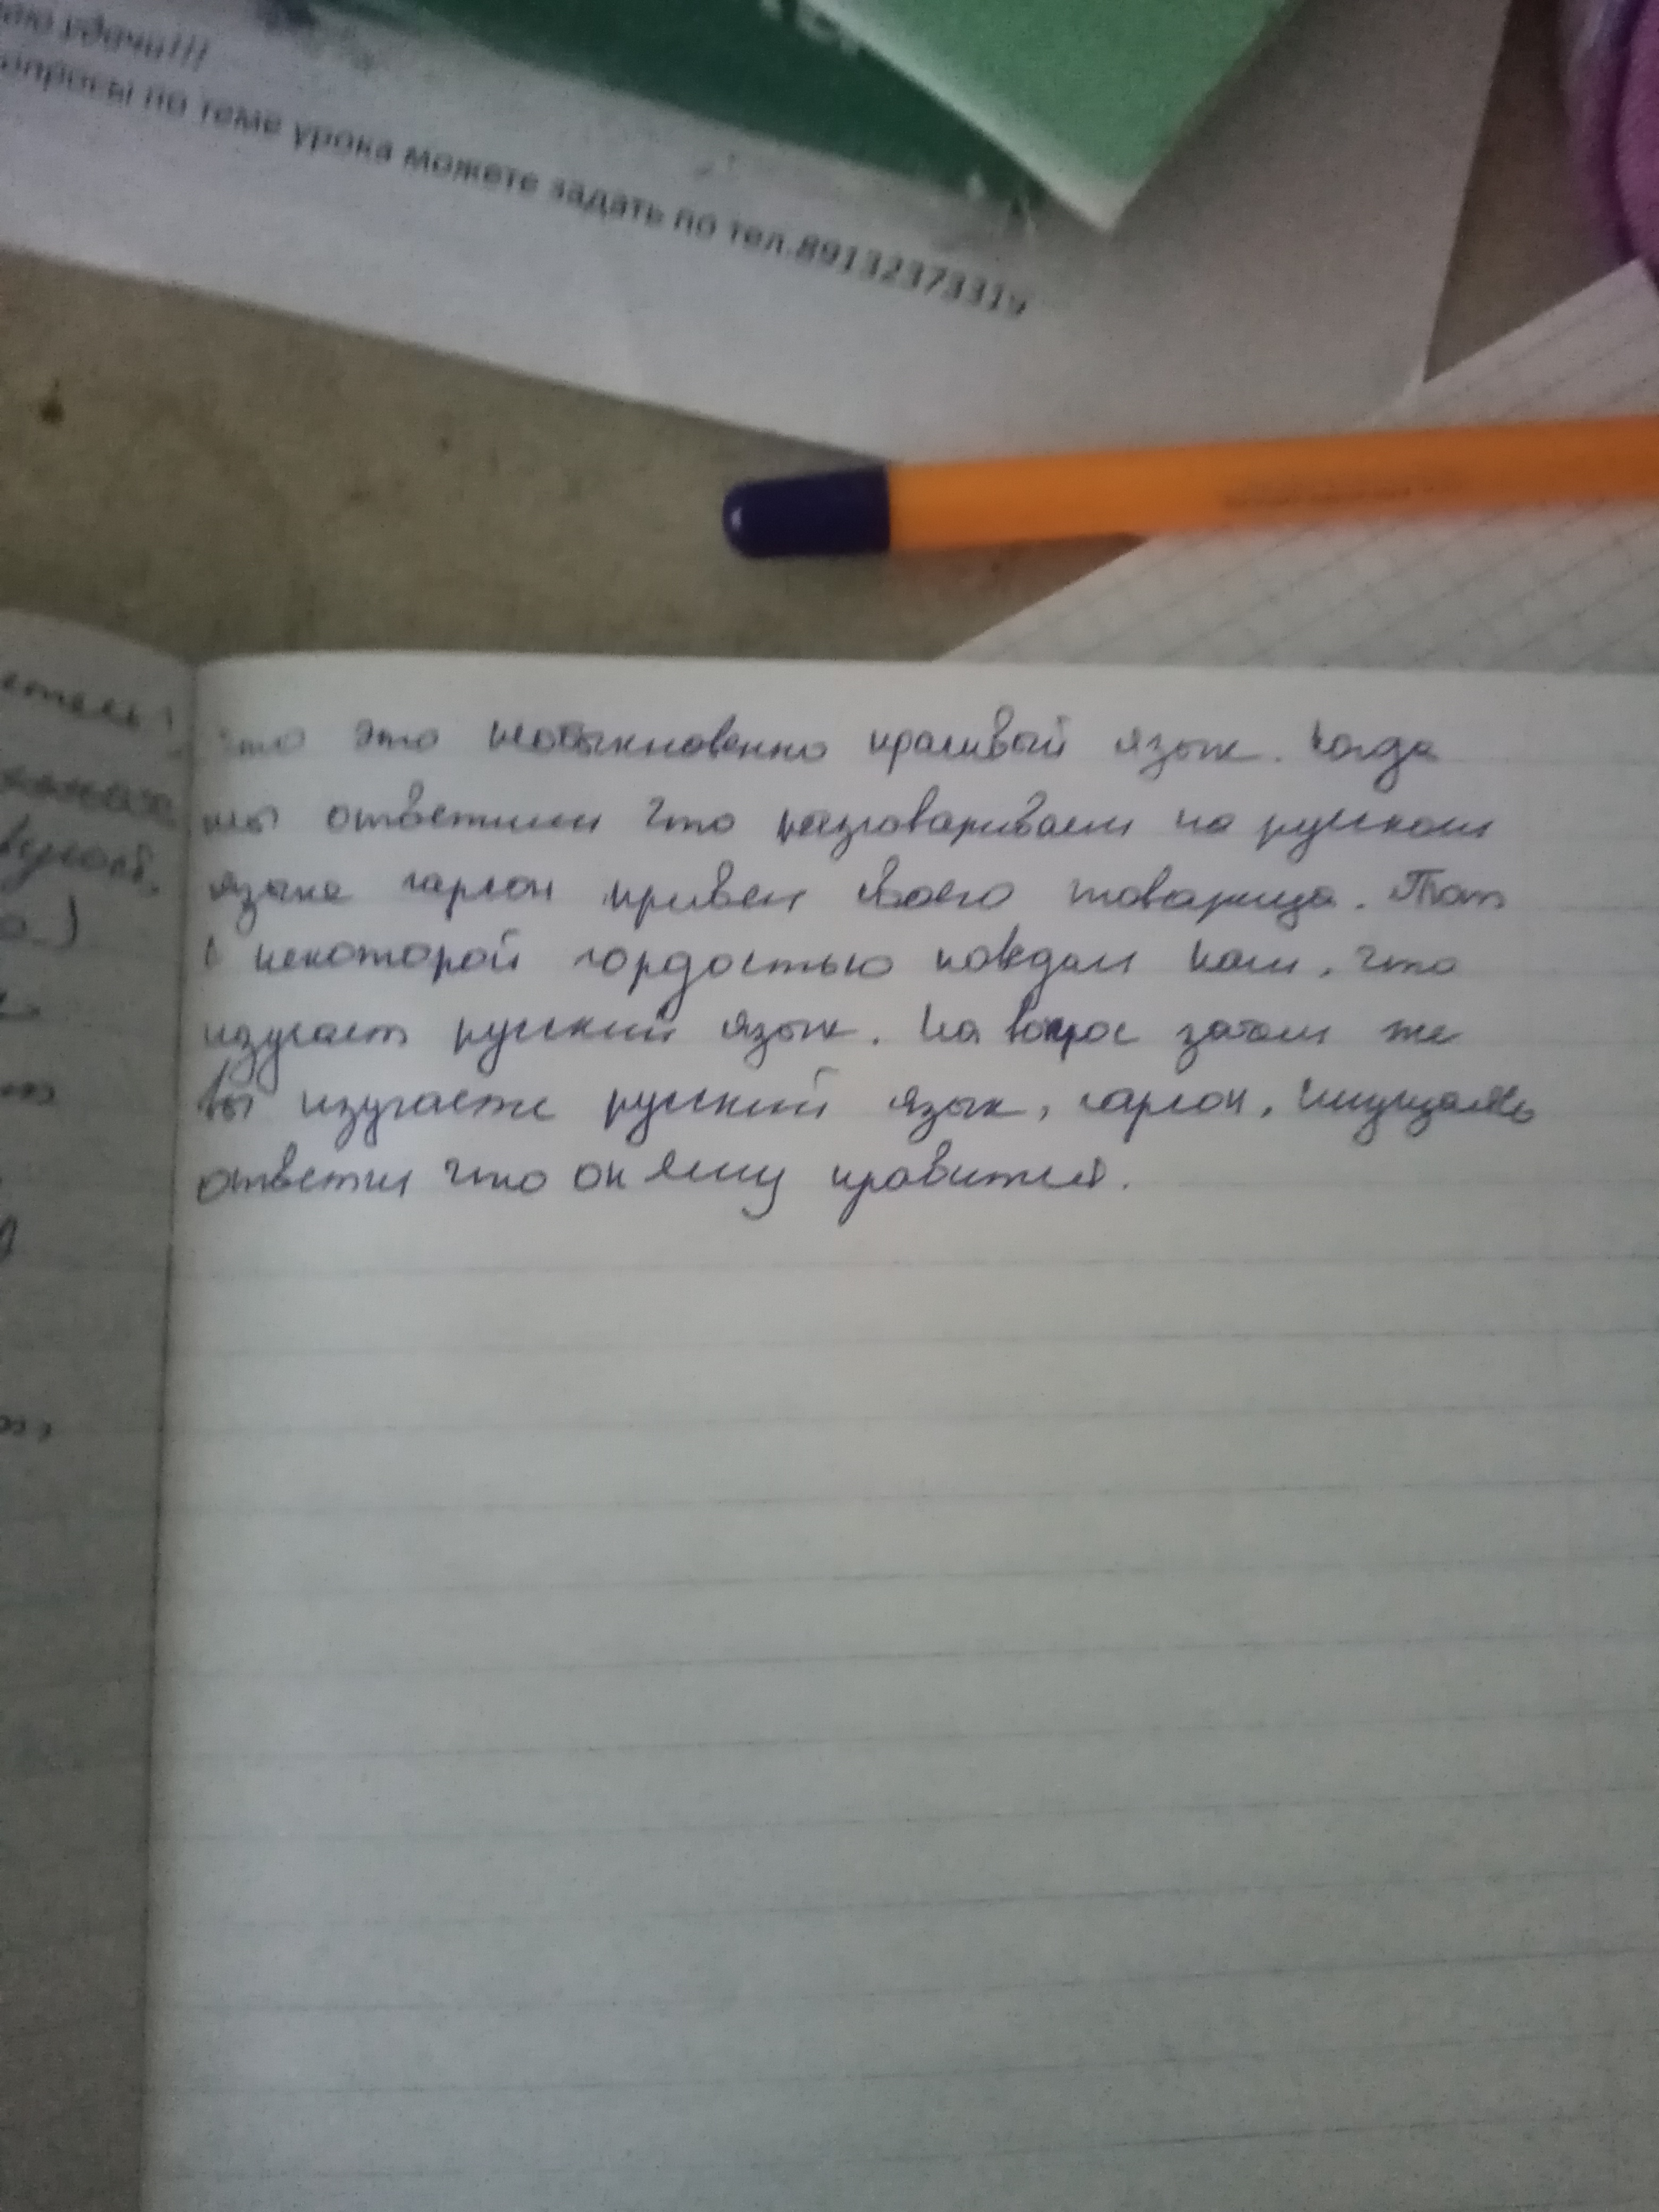 удачи!!!
по теме урока можете задать по тел.89132373319
что это необыкновенно красивый язык. Когда
мы ответили что разговариваем на русском
языке гарсон привел своего товарища. Тот
с некоторой гордостью поведал нам, что
изучает русский язык. На вопрос зачем же
вы изучаете русский язык, гарсон, смущаясь
ответил что он ему нравится.